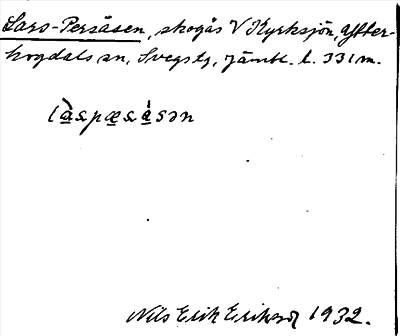 Lars-Persåsen, skogås V Kyrksjön, Ytter-
hogdals sn, Svegs tg, Jämtl. l. 331 m.
Nils Erik Eriksson 1932.